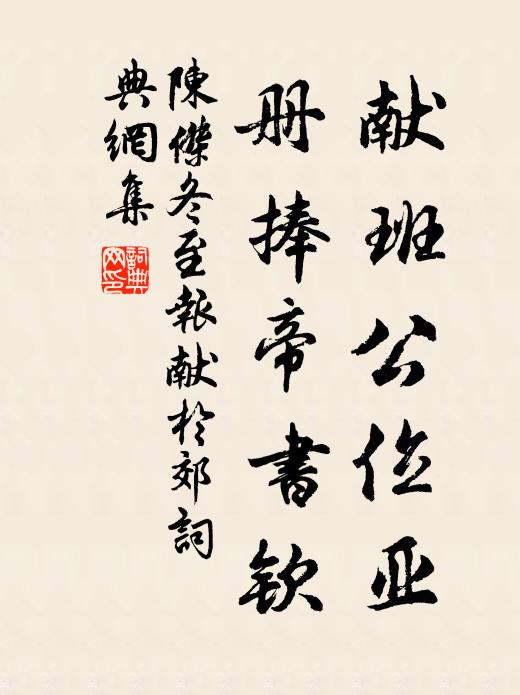 献班公位亚
册捧帝書欽
陳傑冬至報献於郊詞
典網集
詞典
网印